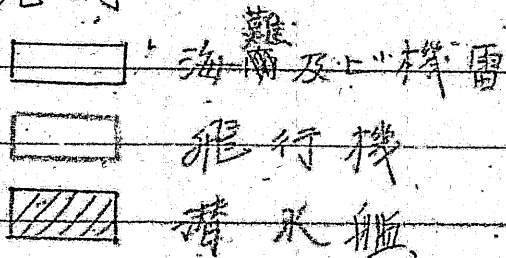 海難及ビ機雷
飛行機
潜水艦